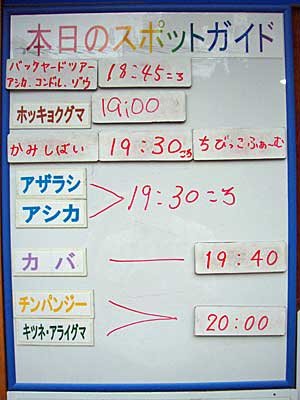 本日のスポットガイド
バックヤードツアー 18:45ころ
アシカ、コンドル、ゾウ
ホッキョクグマ 19:00
かみしばい 19:30ころ ちびっこふぁーむ
アザラシ
アシカ 19:30ころ
カバ 19:40
チンパンジー
キツネ・アライグマ 20:00